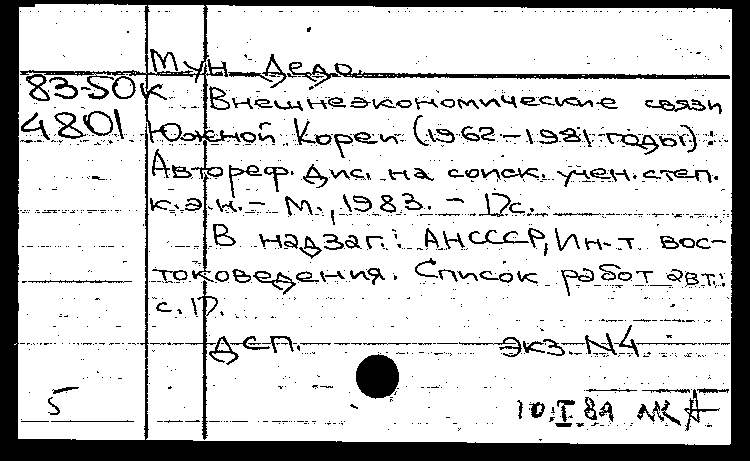 Мун Дедо.
83-50к
4801
Внешнеэкономические связи
Южной Кореи (1962-1981 годы):
Автореф. дис. на соиск. учен. степ.
к.э.н. - М., 1983. - 17с.
В надзаг.: АНСССР, Ин-т вос-
токоведения. Список работ авт.:
с. 17.
ДСП. экз. N4
5
10.I.84